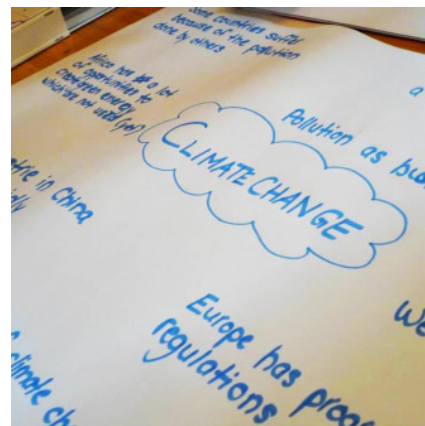 Some countries suffer
because of the pollution
done by others
Africa has a lot
of opportunities to
create green energy
which are not used (yet)
a
Pollution as
CLIMATE CHANGE
in China
We
Europe has
regulations
climate